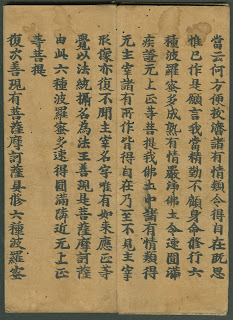 當云何方便拔濟諸有情類令得自在既思
惟已作是願言我當精勤不顧身命修行六
種波羅蜜多成熟有情嚴淨佛土令速圓滿
疾證无上正等菩提我佛土中諸有情類得
无主宰諸有所作皆得自在乃至不見主宰
形像亦復不聞主宰名字唯有如來應正等
覺以法統攝名為法王善現是菩薩摩訶薩
由此六種波羅蜜多速得圓滿隣近无上正
等菩提
復次善現有菩薩摩訶薩具修六種波羅蜜